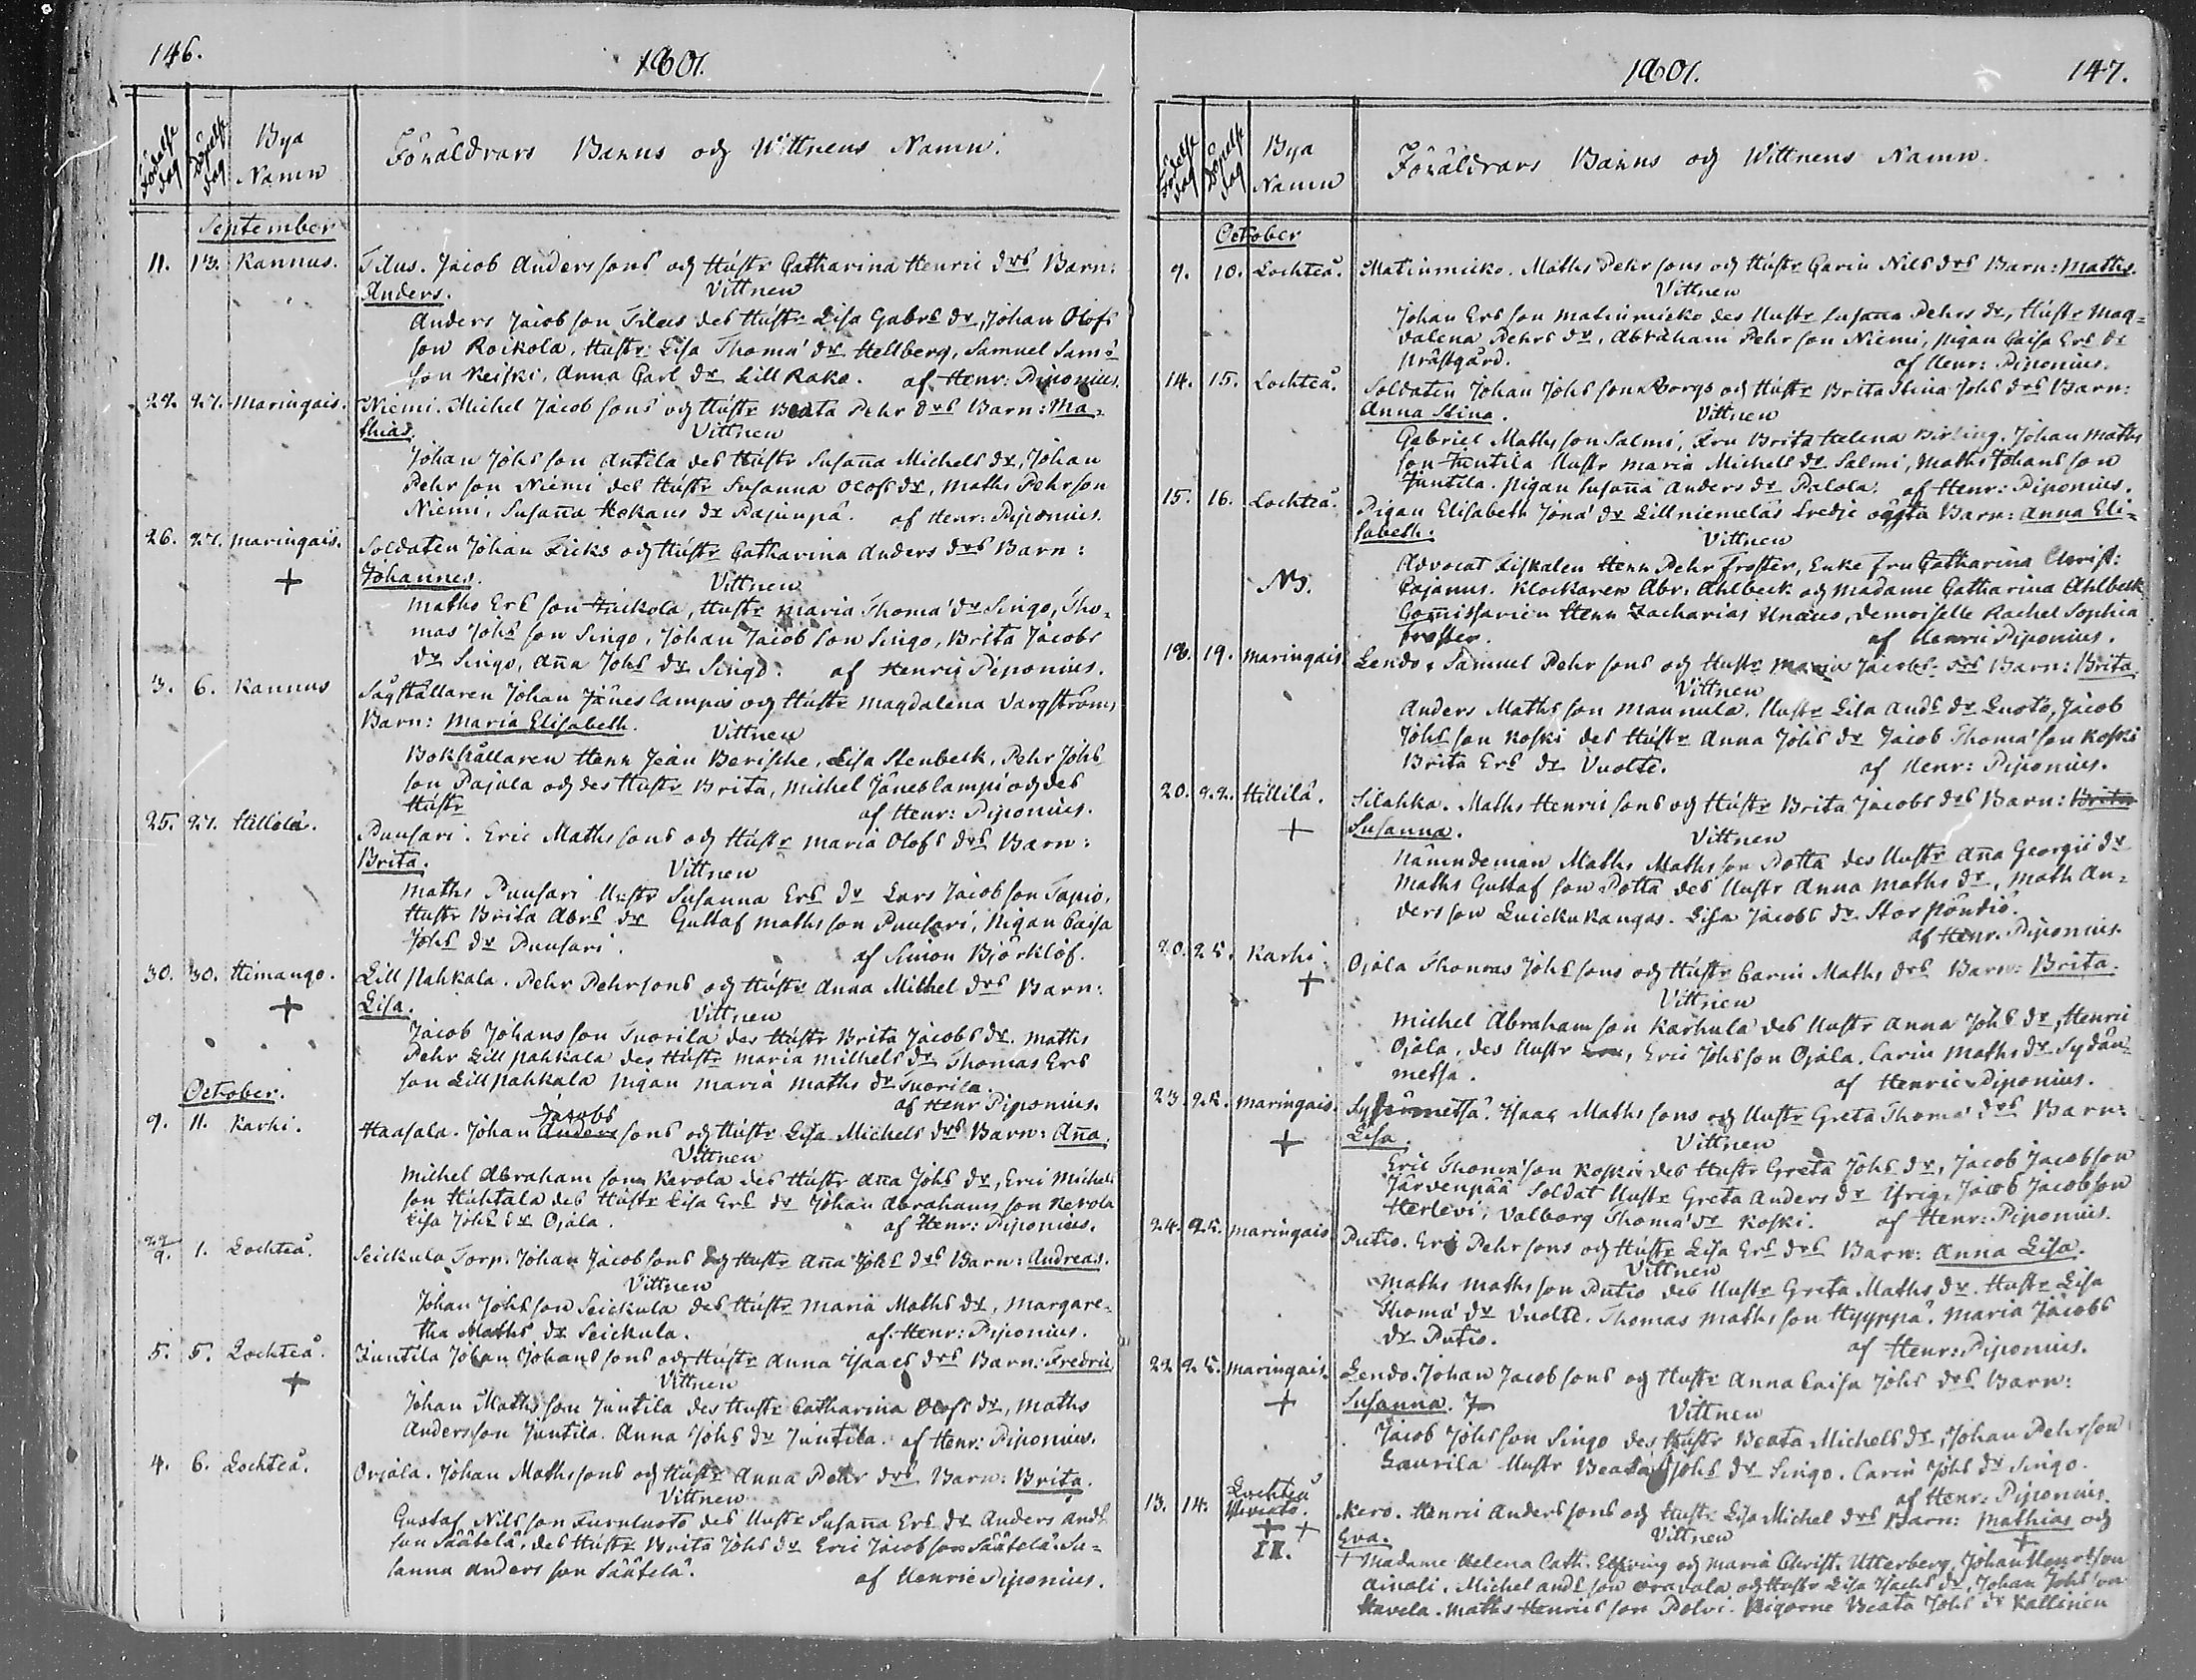 146.
1801.
Födelse dag
Döpelse dag
Bya Namn
Föräldrars Barns og Wittnens Namn.
September
11. 13. Kannus. Tilus. Jacob Anderssons og Hustr Catharina Henric drs Barn:
Anders. Vittnen
Anders Jacobsson Tilus des Hustr Lisa Gabrs dr, Johan Olofs
son Roikola. Hustr: Lisa Thomæ dr Hellberg, Samuel Sams
son Keiski, Anna Carl dr Lill Kako. af Henr: Piponius.
22. 27. Maringais. Niemi. Michel Jacobsons og Hustr Beata Pehr drs Barn: Ma-
thias. Vittnen
Johan Johsson Antila des Hustr Susana Michels dr, Johan
Pehrson Niemi des Hustr Susanna Olofs dr, Maths Pehrson
Niemi, Susana Hokans dr Pajunpä. af Henr: Piponius.
26. 27. Maringais. Soldaten Johan Ficks og Hustr Catharina Anders drs Barn:
+ Johannes. Vittnen
Maths Ers son Huikola, Hustr Maria Thomæ dr Singo, Tho-
mas Johs son Singo, Johan Jacobson Singo, Brita Jacobs
dr Singo, Ana Johs dr Singo. af Henric Piponius.
3. 6. Kannus Sågställaren Johan Jänes Campus og Hustr Magdalena Vargströms
Barn: Maria Elisabeth. Vittnen
Bokhållaren Herr Jean Berische, Lisa Stenbeck, Pehr Johs
son Pajala og des Hustr Brita, Michel Jäneslampi og des
Hustr af Henr: Piponius.
25. 27. Hillilä. Puusari. Eric Mathssons og Hustr Maria Olofs drs Barn:
Brita. Vittnen
Maths Puusari Hustr Susanna Ers dr Lars Jacobsson Tapio,
Hustr Brita Abrs dr Gustaf Mathsson Puusari, Pigan Caisa
Johs dr Puusari. af Simon Björklöf.
30. 30. Himango. Lill Pahkala. Pehr Pehrsons og Hustr Anna Michel drs Barn:
+ Lisa. Vittnen
Jacob Johansson Tuorila des Hustr Brita Jacobs dr. Maths
Pehr Lill Pahkala des Hustr Maria Michels dr Thomas Ers
son Lill Pahkala Pigan Maria Maths dr Tuorila.
af Henr Piponius.
October.
Jacobs
9. 11. Karhi. Haasala. Johan Anders sons og Hustr Lisa Michels drs Barn: Ana.
Vittnen
Michel Abraham son Kerola des Hustr Ana Johs dr, Eric Michels
son Huhtala des Hustr Lisa Ers dr Johan Abrahamsson Kerola
Lisa Johs dr Ojala. af Henr: Piponius.
29/9. 1. Lochteå. Seickula Torp. Johan Jacobsons og Hustr Ana Johs drs Barn: Andreas.
Vittnen
Johan Johsson Seickula des Hustr Maria Maths dr, Margare-
tha Maths dr Seickula. af Henr: Piponius.
5. 5. Lochteå. Juntila Johan Johanssons og Hustr Anna Isaacs drs Barn: Fredric.
+ Vittnen
Johan Mathsson Juntila des Hustr Catharina Olofs dr, Maths
Andersson Juntila. Anna Johs dr Juntila. af Henr: Piponius.
4. 6. Lochteå. Orjala. Johan Mathssons og Hustr Anna Pehr drs Barn: Brita.
Vittnen
Gustaf Nilsson Furuluoto des Hustr Susana Ers dr Anders Ands
son Säätelä, des Hustr Brita Johs dr Eric Jacobsson Säätelä. Su-
sanna Andersson Säätelä. af Henric Piponius.
1801. 147.
Födelse dag
Döpelse dag
Bya Namn
Föräldrars Barns og Wittnens Namn.
October
9. 10. Lochteå. Matinmicko. Maths Pehrsons og Hustr Carin Nils drs Barn: Maths.
Vittnen
Johan Ers son Matinmicko des Hustr Susana Pehrs dr, Hustr Mag-
dalena Pehrs dr, Abraham Pehrson Niemi, Pigan Caisa Ers dr
Prästgård. af Henr: Piponius.
14. 15. Lochteå. Soldaten Johan Johssons Borgs og Hustr Brita Stina Johs drs Barn:
Anna Stina. Vittnen
Gabriel Mathsson Salmi, Fru Brita Helena Birling. Johan Maths
son Juntila Hustr Maria Michels dr Salmi, Maths Johansson
Juntila. Pigan Susana Anders dr Palola. af Henr: Piponius.
15. 16. Lochteå. Pigan Elisabeth Jonæ dr Lillniemeläs tredje oägta Barn: Anna Eli-
sabeth. Vittnen
NB. Advocat Fiskalen Herr Pehr Froster, Enke Fru Catharina Christ:
Cajanus. Klockaren Abr: Ahlbeck og Madame Catharina Ahlbeck
Comissarien Herr Zacharias Unæus, Demoiselle Rachel Sophia
Froster. af Henric Piponius.
18. 19. Maringais Lendo, Samuel Pehrsons og Hustr Maria Jacobs drs Barn: Brita.
Vittnen
Anders Mathsson Maunula. Hustr Lisa Ands dr Luoto, Jacob
Johsson Koski des Hustr Anna Johs dr Jacob Thomæson Koski
Brita Ers dr Vuolte. af Henr: Piponius.
20. 22. Hillilä. Silahka. Maths Henricsons og Hustr Brita Jacobs drs Barn: Brita
+ Susanna. Vittnen
Nämndeman Maths Mathsson Potta des Hustr Ana Georgii dr
Maths Gustafson Potta des Hustr Anna Maths dr, Math An-
dersson Luickukangas. Lisa Jacobs dr Storpöndiö.
af Henr. Piponius.
20. 25. Karhi. Ojala Thomas Johssons og Hustr Carin Maths drs Barn: Brita.
+ Vittnen
Michel Abrahamson Karhula des Hustr Anna Johs dr, Henric
Ojala, des Hustr, Eric Johsson Ojala. Carin Maths dr Sydän-
metsa. af Henric Piponius.
23. 25. Maringais. Sydänmetsä. Isaac Mathssons og Hustr Greta Thomæ drs Barn:
+ Lisa. Vittnen
Eric Thomæson Koski des Hustr Greta Johs dr, Jacob Jacobson
Järvenpää Soldat Hustr Greta Anders dr Ifrig, Jacob Jacobson
Herlevi, Valborg Thomæ dr Koski. af Henr: Piponius.
24. 25. Maringais. Putio. Eric Pehrsons og Hustr Lisa Ers drs Barn: Anna Lisa.
Vittnen
Maths Mathsson Putio des Hustr Greta Maths dr. Hustr Lisa
Thomæ dr Vuolte. Thomas Mathsson Hyyppä. Maria Jacobs
dr Putio. af Henr: Piponius.
22 25. Maringais. Lendo. Johan Jacobsons og Hustr Anna Caisa Johs drs Barn:
+ Susanna. Vittnen
Jacob Johsson Singo des Hustr Beata Michels dr, Johan Pehrson
Laurila Hustr Beata Johs dr Singo. Carin Johs dr Singo.
af Henr: Piponius.
13. 14. Lochteå Kero. Henric Anderssons og Hustr Lisa Michel drs Barn: Mathias og
+ + II. Eva. Vittnen
+ Madame Helena Cath. Elfving og Maria Christ. Utterberg, Johan Henrsson
Ainali. Michel Ands son Oravala og Hustr Lisa Isacks dr, Johan Johsson
Havela. Maths Henricsson Polvi. Pigorne Beata Johs dr Kallinen